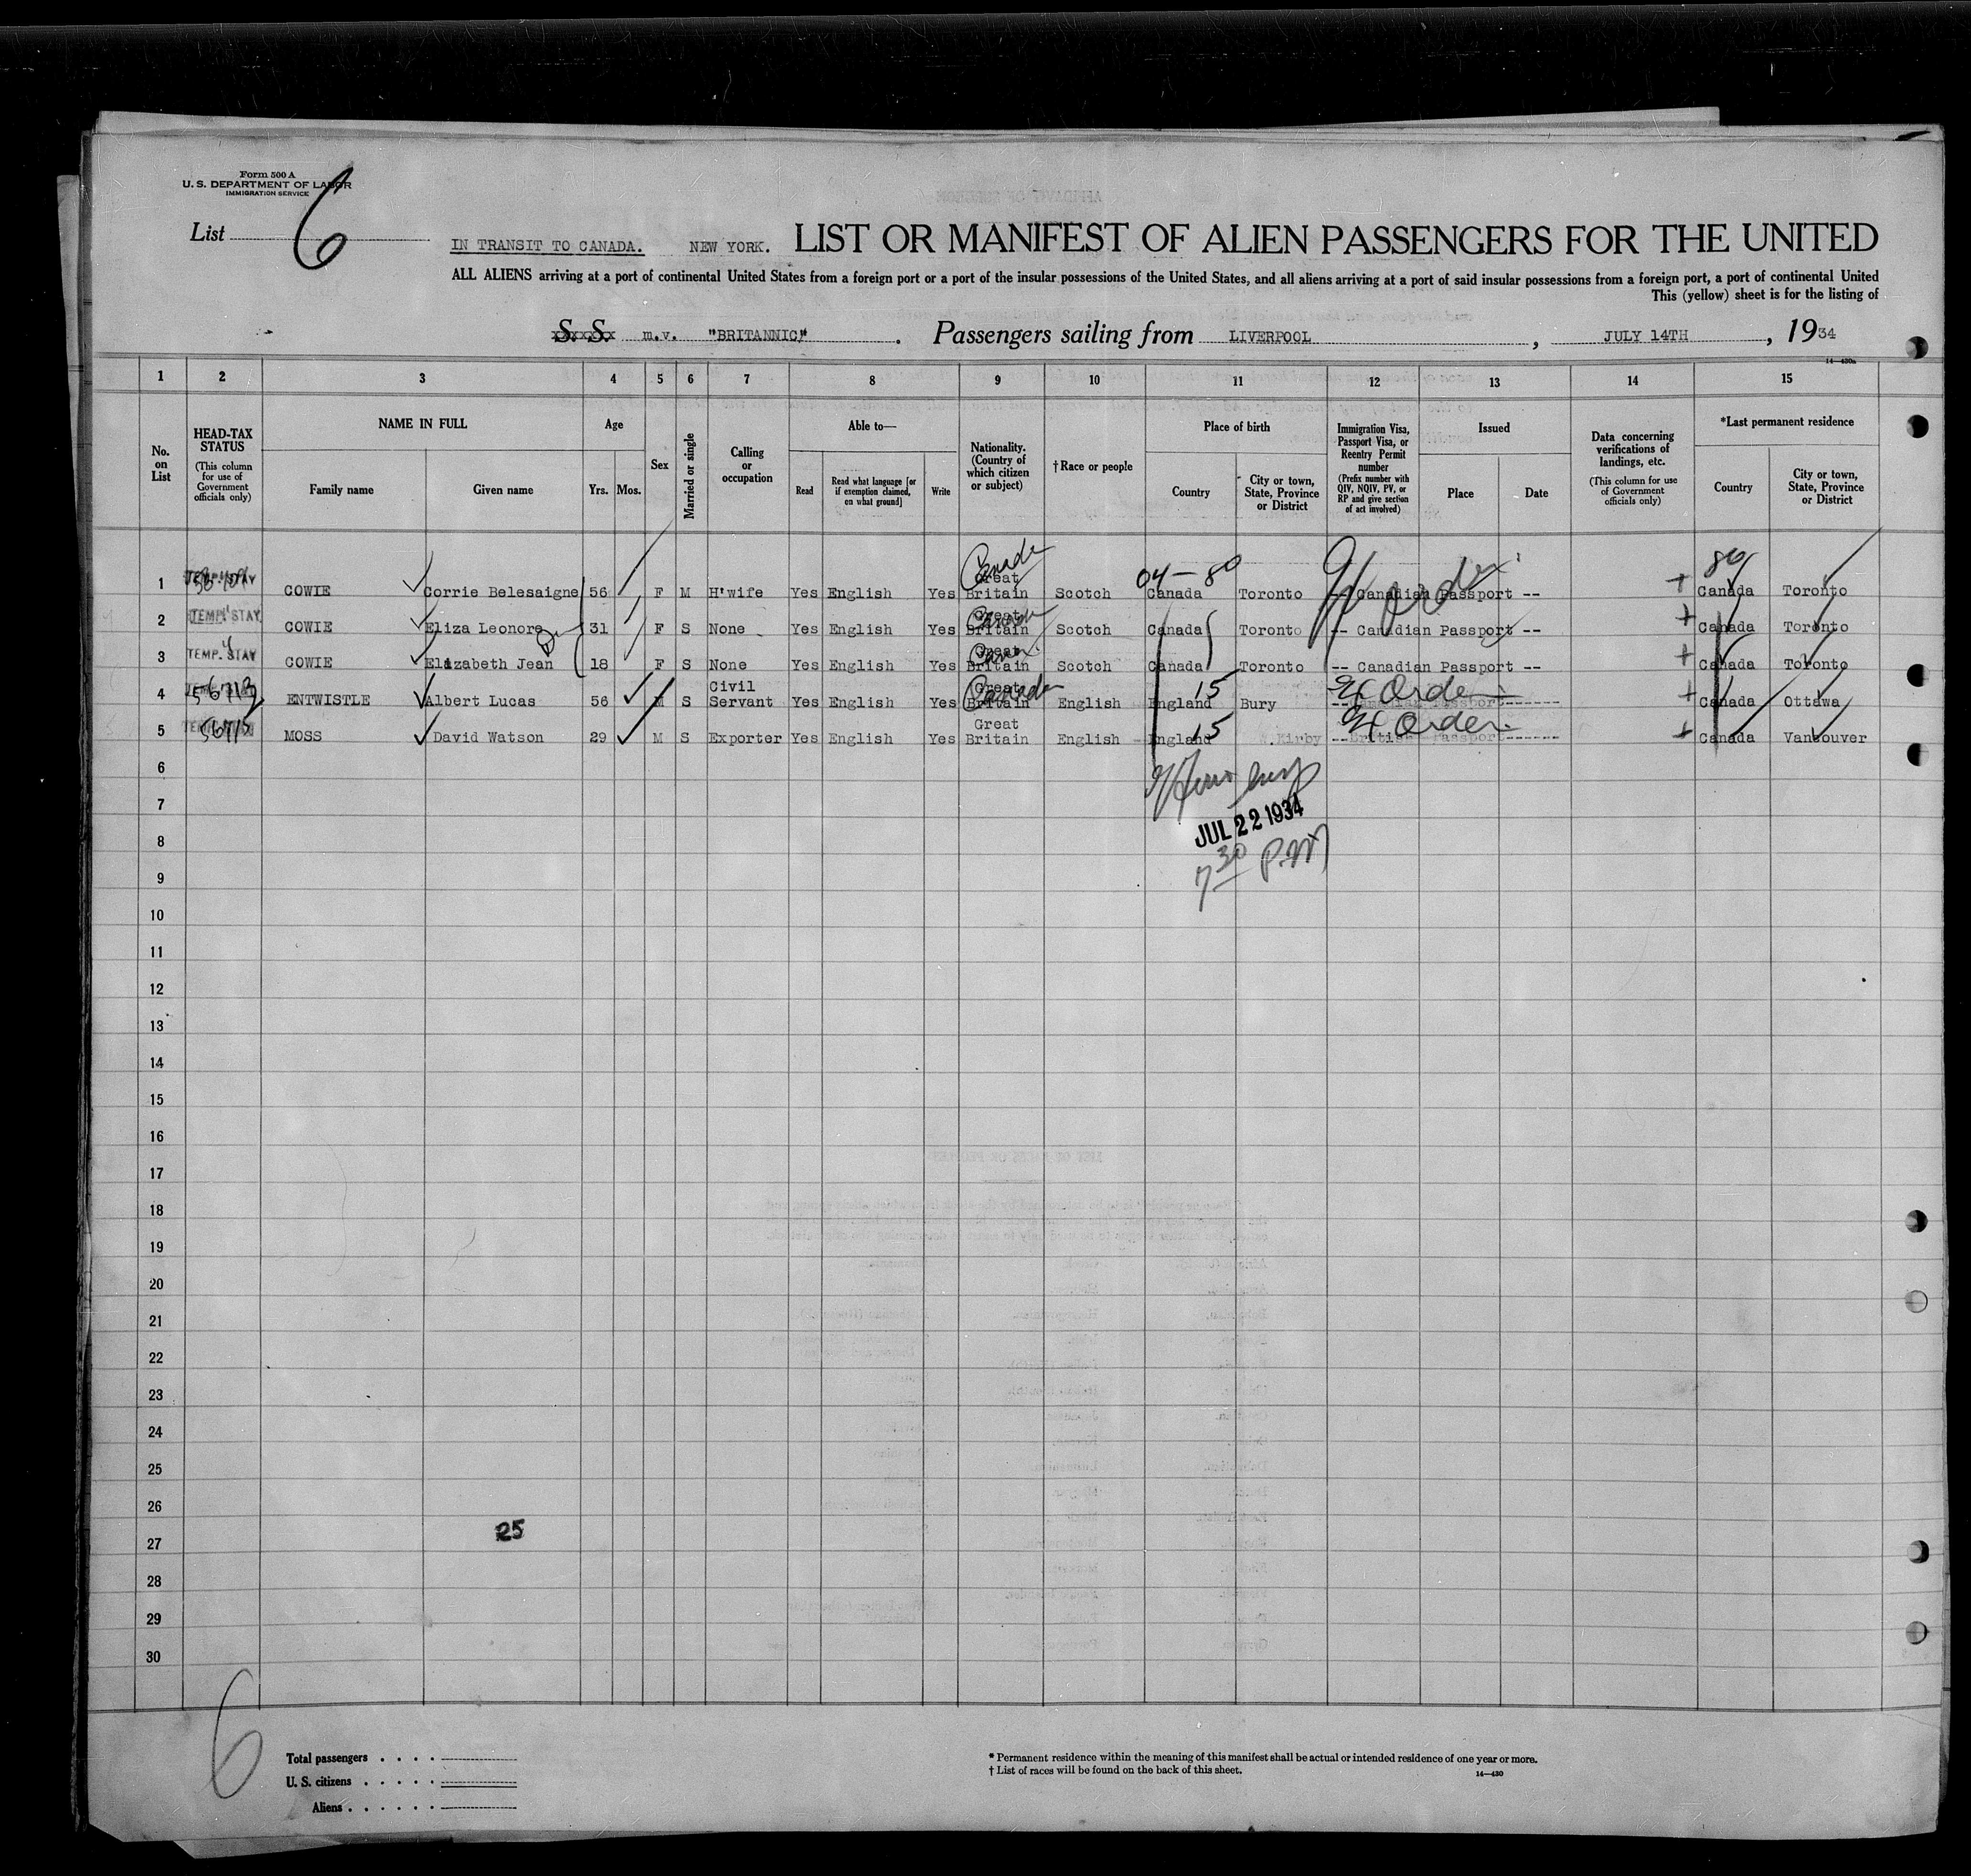 Form 500 A
U. S. DEPARTMENT OF LABOR
IMMIGRATION SERVICE
List 6
IN TRANSIT TO CANADA. NEW YORK. LIST OR MANIFEST OF ALIEN PASSENGERS FOR THE UNITED
ALL ALIENS arriving at a port of continental United States from a foreign port or a port of the insular possessions of the United States, and all aliens arriving at a port of said insular possessions from a foreign port, a port of continental United
This (yellow) sheet is for the listing of
S. S. m.v. "BRITANNIC". Passengers sailing from LIVERPOOL, JULY 14TH, 1934
14—430a
1 2 3 4 5 6 7 8 9 10 11 12 13 14 15
No. on List
HEAD-TAX STATUS (This column for use of Government officials only)
NAME IN FULL
Family name Given name
Age
Yrs. Mos.
Sex
Married or single
Calling or occupation
Able to—
Read Read what language [or if exemption claimed, on what ground] Write
Nationality. (Country of which citizen or subject)
†Race or people
Place of birth
Country City or town, State, Province or District
Immigration Visa, Passport Visa, or Reentry Permit number (Prefix number with QIV, NQIV, PV, or RP and give section of act involved)
Issued
Place Date
Data concerning verifications of landings, etc. (This column for use of Government officials only)
*Last permanent residence
Country City or town, State, Province or District
Canada 04—80 80
1 TEMP. STAY COWIE Corrie Belesaigne 56 F M H'wife Yes English Yes Great Britain Scotch Canada Toronto -- Canadian Passport -- Canada Toronto
2 TEMP. STAY COWIE Eliza Leonore 31 F S None Yes English Yes Great Britain Scotch Canada Toronto -- Canadian Passport -- Canada Toronto
3 TEMP. STAY COWIE Elizabeth Jean 18 F S None Yes English Yes Great Britain Scotch Canada Toronto -- Canadian Passport -- Canada Toronto
4 ENTWISTLE Albert Lucas 56 M S Civil Servant Yes English Yes Great Britain Canada English England 15 Bury Ex Order Canada Ottawa
5 MOSS David Watson 29 M S Exporter Yes English Yes Great Britain English England 15 W.Kirby --British Passport------ Ex Order Canada Vancouver
6
7
JUL 22 1934
8
7 30 P.M
9
10
11
12
13
14
15
16
17
18
19
20
21
22
23
24
25
26
25
27
28
29
30
6
Total passengers
U. S. citizens
Aliens
* Permanent residence within the meaning of this manifest shall be actual or intended residence of one year or more.
† List of races will be found on the back of this sheet.
14—430